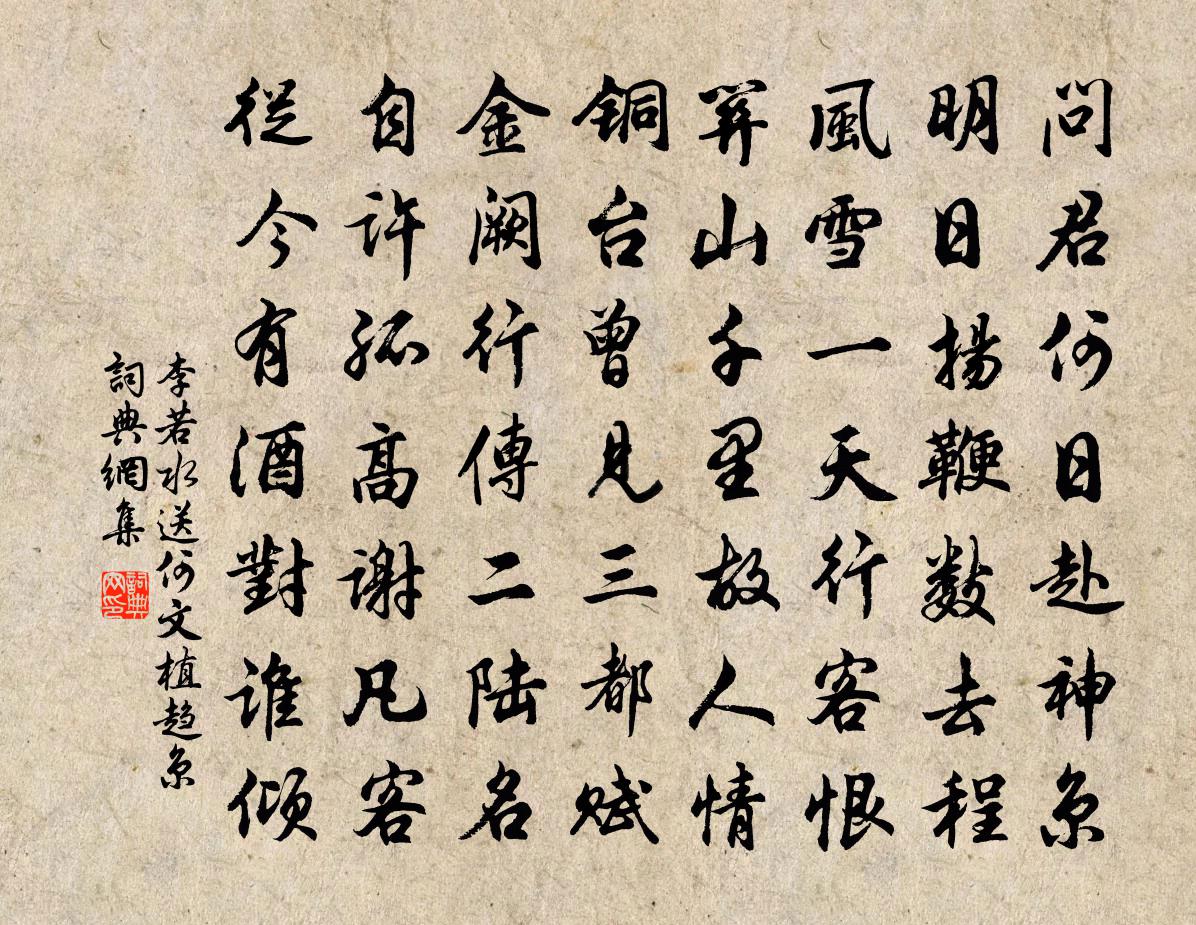 問君何日赴神京
明日揚鞭數去程
風雪一天行客恨
關山千里故人情
銅台曾見三都賦
金闕行傳二陸名
自許孤高謝凡客
從今有酒對誰傾
李若水送何文植趨京
詞典網集
詞典网印